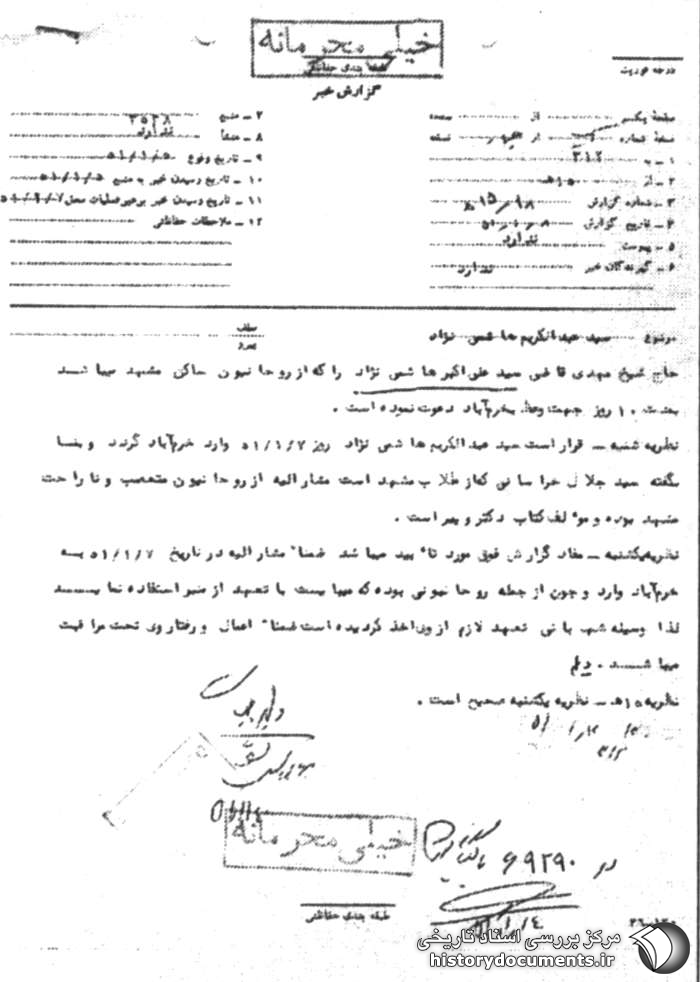 خیلی محرمانه
طبقه بندی حفاظتی
گزارش خبر
درجه فوریت
صفحه یکم از صفحه
نسخه شماره از نسخه
۱ ـ به ۳۱۲
۲ ـ از ۱۵ه
۳ ـ شماره گزارش
۴ ـ تاریخ گزارش
۵ ـ پیوست ندارد
۶ ـ گیرندگان خبر ندارد
۷ ـ منبع ۳۵۲۸
۸ ـ منشأ ندارد
۹ ـ تاریخ وقوع ۵۱/۱/۵
۱۰ ـ تاریخ رسیدن خبر به منبع ۵۱/۱/۵
۱۱ ـ تاریخ رسیدن خبر برهبر عملیات محل ۵۱/۱/۷
۱۲ ـ ملاحظات حفاظتی
موضوع سید عبدالکریم هاشمی نژاد
عطف
پیرو
حاج شیخ مهدی قاضی سید علی اکبر هاشمی نژاد را که از روحانیون ساکن مشهد میباشد
بمدت ۱۰ روز جهت وعظ بخرم‌آباد دعوت نموده است .
نظریه شنبه ـ قرار است سید عبدالکریم هاشمی نژاد روز ۵۱/۱/۷ وارد خرم‌آباد گردد و بنا
بگفته سید جلال خراسانی که از طلاب مشهد است مشارالیه از روحانیون متعصب و ناراحت
مشهد بوده و مولف کتاب دکتر و پیر است .
نظریه یکشنبه ـ مفاد گزارش فوق مورد تائید میباشد ضمنا" مشارالیه در تاریخ ۵۱/۱/۷ به
خرم‌آباد وارد و چون از جمله روحانیونی بوده که میبایست با تعهد از منبر استفاده نمایند
لذا وسیله شهربانی تعهد لازم از وی اخذ گردیده است ضمنا" اعمال و رفتار وی تحت مراقبت
میباشد .
نظریه ۱۵ه ـ نظریه یکشنبه صحیح است .
خیلی محرمانه
در
طبقه بندی حفاظتی
مرکز بررسی اسناد تاریخی
historydocuments.ir